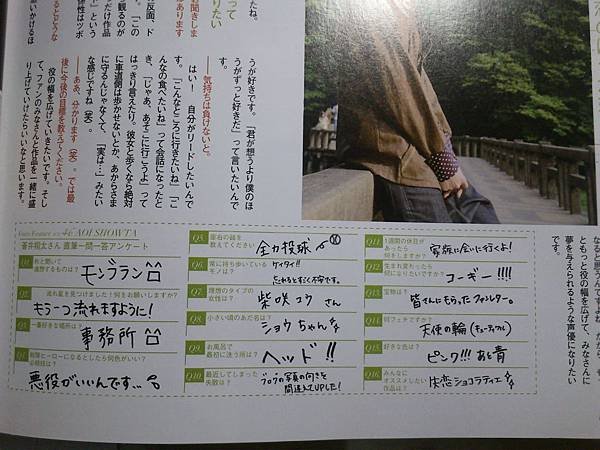 うが好きです。「君が想うより僕のほ
うがずっと好きだ」って言いたいんで
す。
――気持ちは負けないと。
はい！　自分がリードしたいんで
す。「こんなところに行きたいね」「こ
んなの食べたいね」って会話になったと
き、「じゃあ、あそこに行こうよ」って
はっきり言えたり。彼女と歩くなら絶対
に車道側は歩かせないとか、あからさま
に守るんじゃなくて、「実は…」みたい
な感じですね（笑）。
――ああ、分かります（笑）。では最
後に今後の目標を教えてください。
役の幅を広げていきたいです。そし
て、ファンのみなさんと作品を一緒に盛
り上げていけたらいいなと思います。
ともっと役の幅を広げて、みなさんに
夢を与えられるような声優になりたい
です。
AOI SHOWTA
蒼井翔太さん 直筆一問一答アンケート
Q1.
モンブラン
Q2. 流れ星を見つけました！何をお願いしますか？
もう一つ流れますように！
Q3. 一番好きな場所は？
事務所
戦隊ヒーローになるとしたら何色がいい？
悪役がいいんです…
Q5. 座右の銘を
教えてください
全力投球
Q6. 常に持ち歩いている
モノは？
ケイタイ!!
忘れるとすごく不安です。
Q7. 理想のタイプの
女性は？
柴咲コウ さん
Q8. 小さい頃のあだ名は？
ショウちゃん
Q9. お風呂で
最初に洗う所は？
ヘッド!!
Q10. 最近してしまった
失敗は？
ブログの写真の向きを
間違えてUPした！
Q11. 1週間の休日が
あったら
何をしますか？
家族に会いに行くよ！
Q12. 生まれ変わったら
何になりたいですか？
コーギー!!!!
Q13. 宝物は？
皆さんにもらったファンレター。
Q14. 何フェチですか？
天使の輪(キューティクル)
Q15. 好きな色は？
ピンク!!! あと青
Q16. みんなに
オススメしたい
作品は？
失恋ショコラティエ